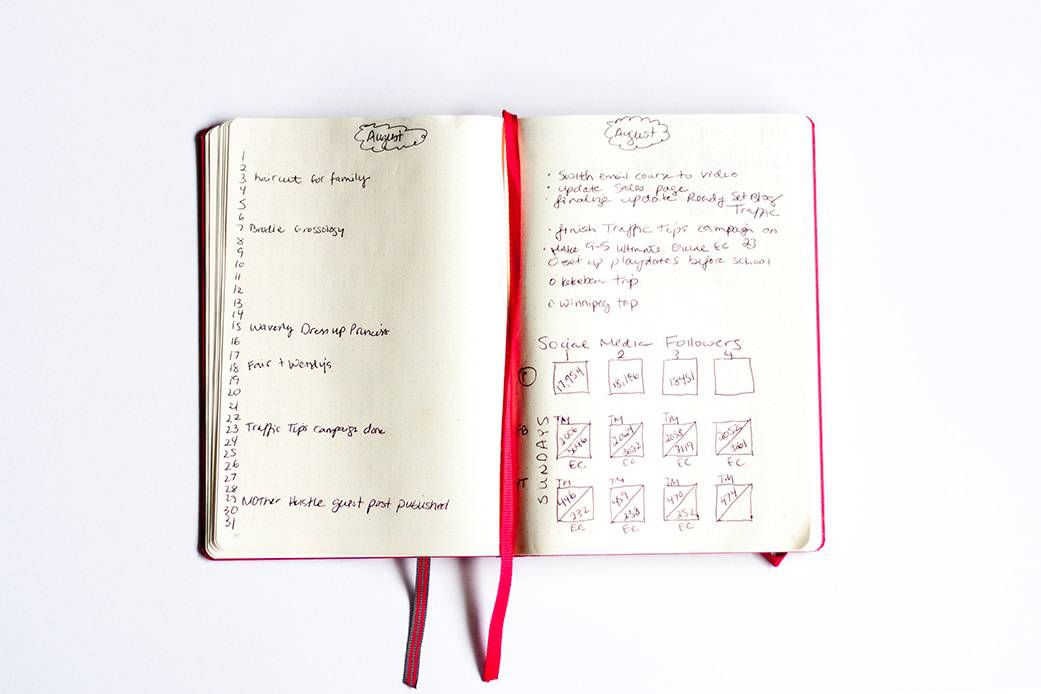 August
1
2
3 haircut for family
4
5
6
7 Brodie Grossology
8
9
10
11
12
13
14
15 Waverly Dress up Princess
16
17
18 Fair + Wendy's
19
20
21
22
23 Traffic Tips campaign done
24
25
26
27
28
29 Mother Hustle guest post published
30
31
August
• Switch email course to video
• update sales page
• finalize update Ready Set Blog/
Traffic
• finish Traffic Tips campaign on
23
• Make G-5 Ultimate Guide EC
O set up playdates before school
o trip
o Winnipeg trip
Social Media Followers
1 2 3 4
P 17,954 18,186 18451
SUNDAYS
TM TM TM
FB
2006 2038 2052
3046 3082 3119 3161
EC EC EC EC
TM TM TM TM
T
446 459 470 474
232 238 252
EC EC EC